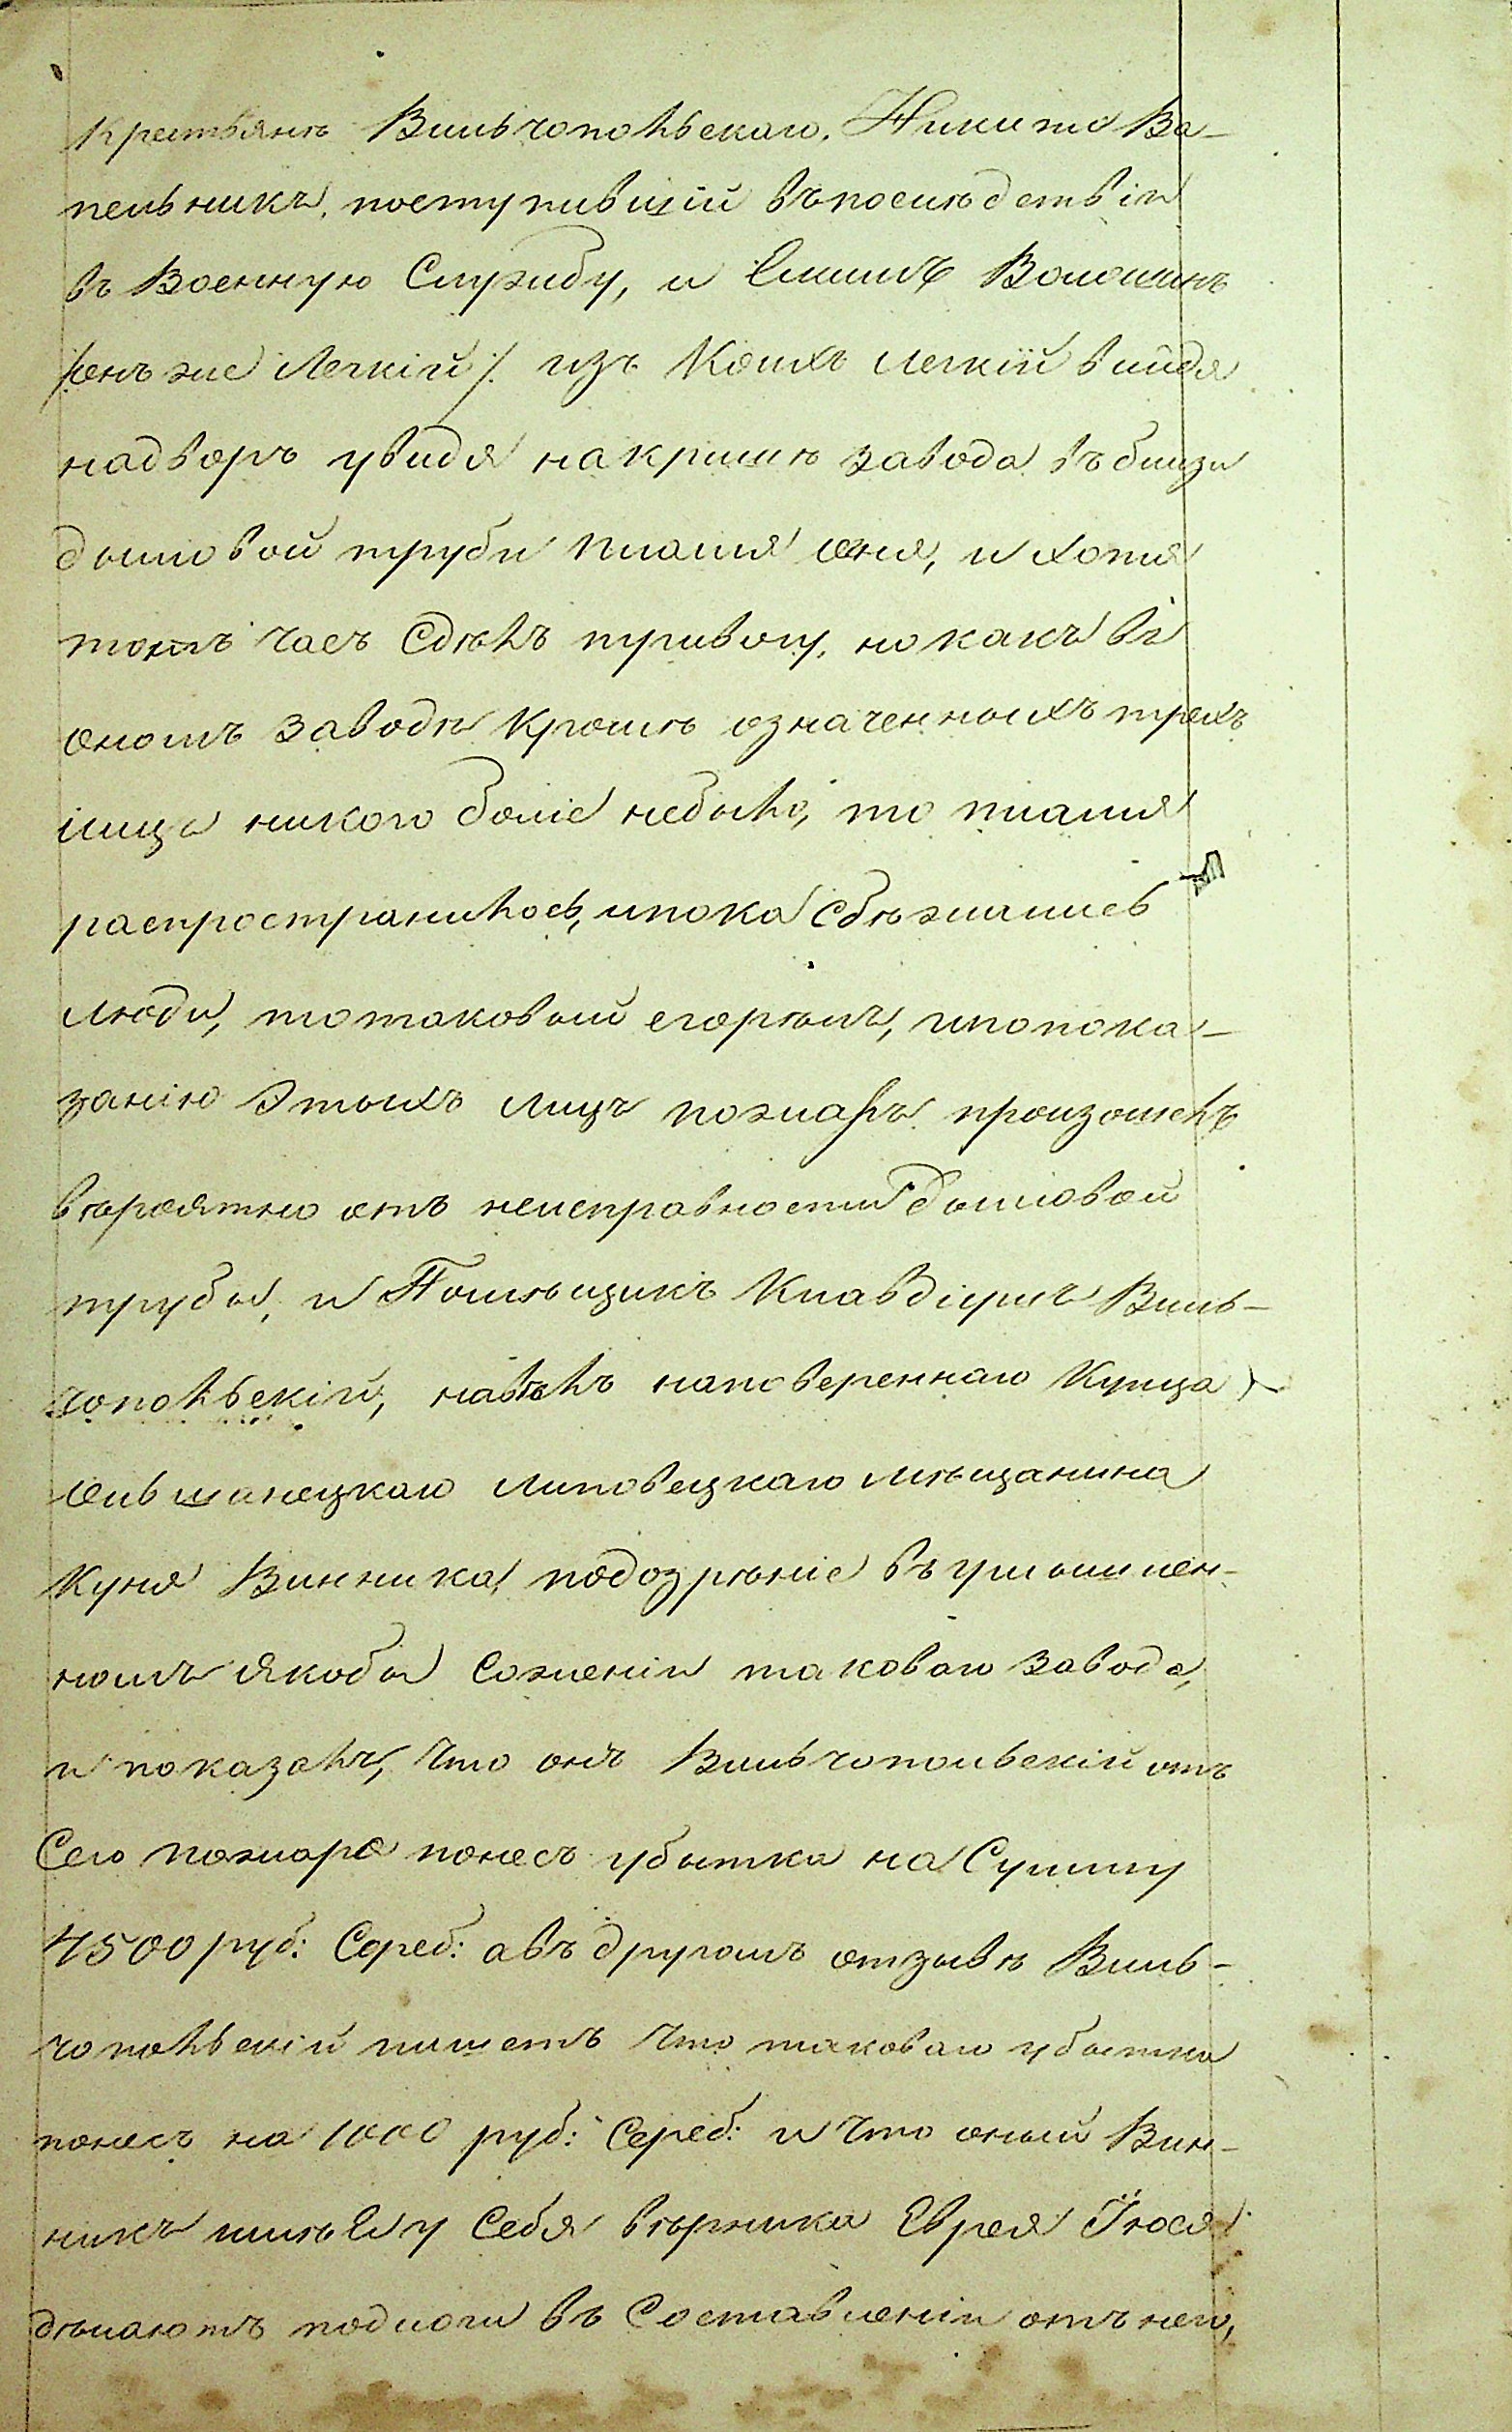 крестьянъ Вильчопольскаго, Никита Ва-
пельникъ, поступившій въпослѣдствіи
въ Военную Службу, и Емилъ Волошинъ
/: онъ же Легкій :/ изъ коихъ Легкій вийдя
надворъ увидя накришѣ завода въблизи
дымовой труби пламя огня, и хотя
тотъ часъ Сдѣлъ тривогу, но какъ въ
ономъ заводѣ кромѣ означенныхъ трехъ
лицъ никого боліе небыло, то пламя
распространилось, ипока Сбѣжались
люди, тотаковый сгорѣлъ, ипопока-
занію Этыхъ лицъ пожаръ произошелъ
вѣроятно отъ неисправности дымовой
трубы, и Помѣщикъ Клавдіушъ Виль-
чопольскій, навѣлъ наповереннаго Купца
Ольшанецкаго Липовецкаго мѣщанина
Куня Винника, подозрѣніе въ умышлен-
номъ якобы Сожженіи таковаго завода,
и показалъ, что онъ Вильчопольскій отъ
Сего пожара понесъ убытка на Сумму
4500 руб: Сереб: авъ другомъ отзывѣ Виль-
чопольскій пишетъ что таковаго убытка
понесъ на 1000 руб: Сереб: и что оный Вин-
никъ имѣя у Себя вѣрника Еврея Іося
дѣлаютъ подлоги въ Составленіи отъ него,